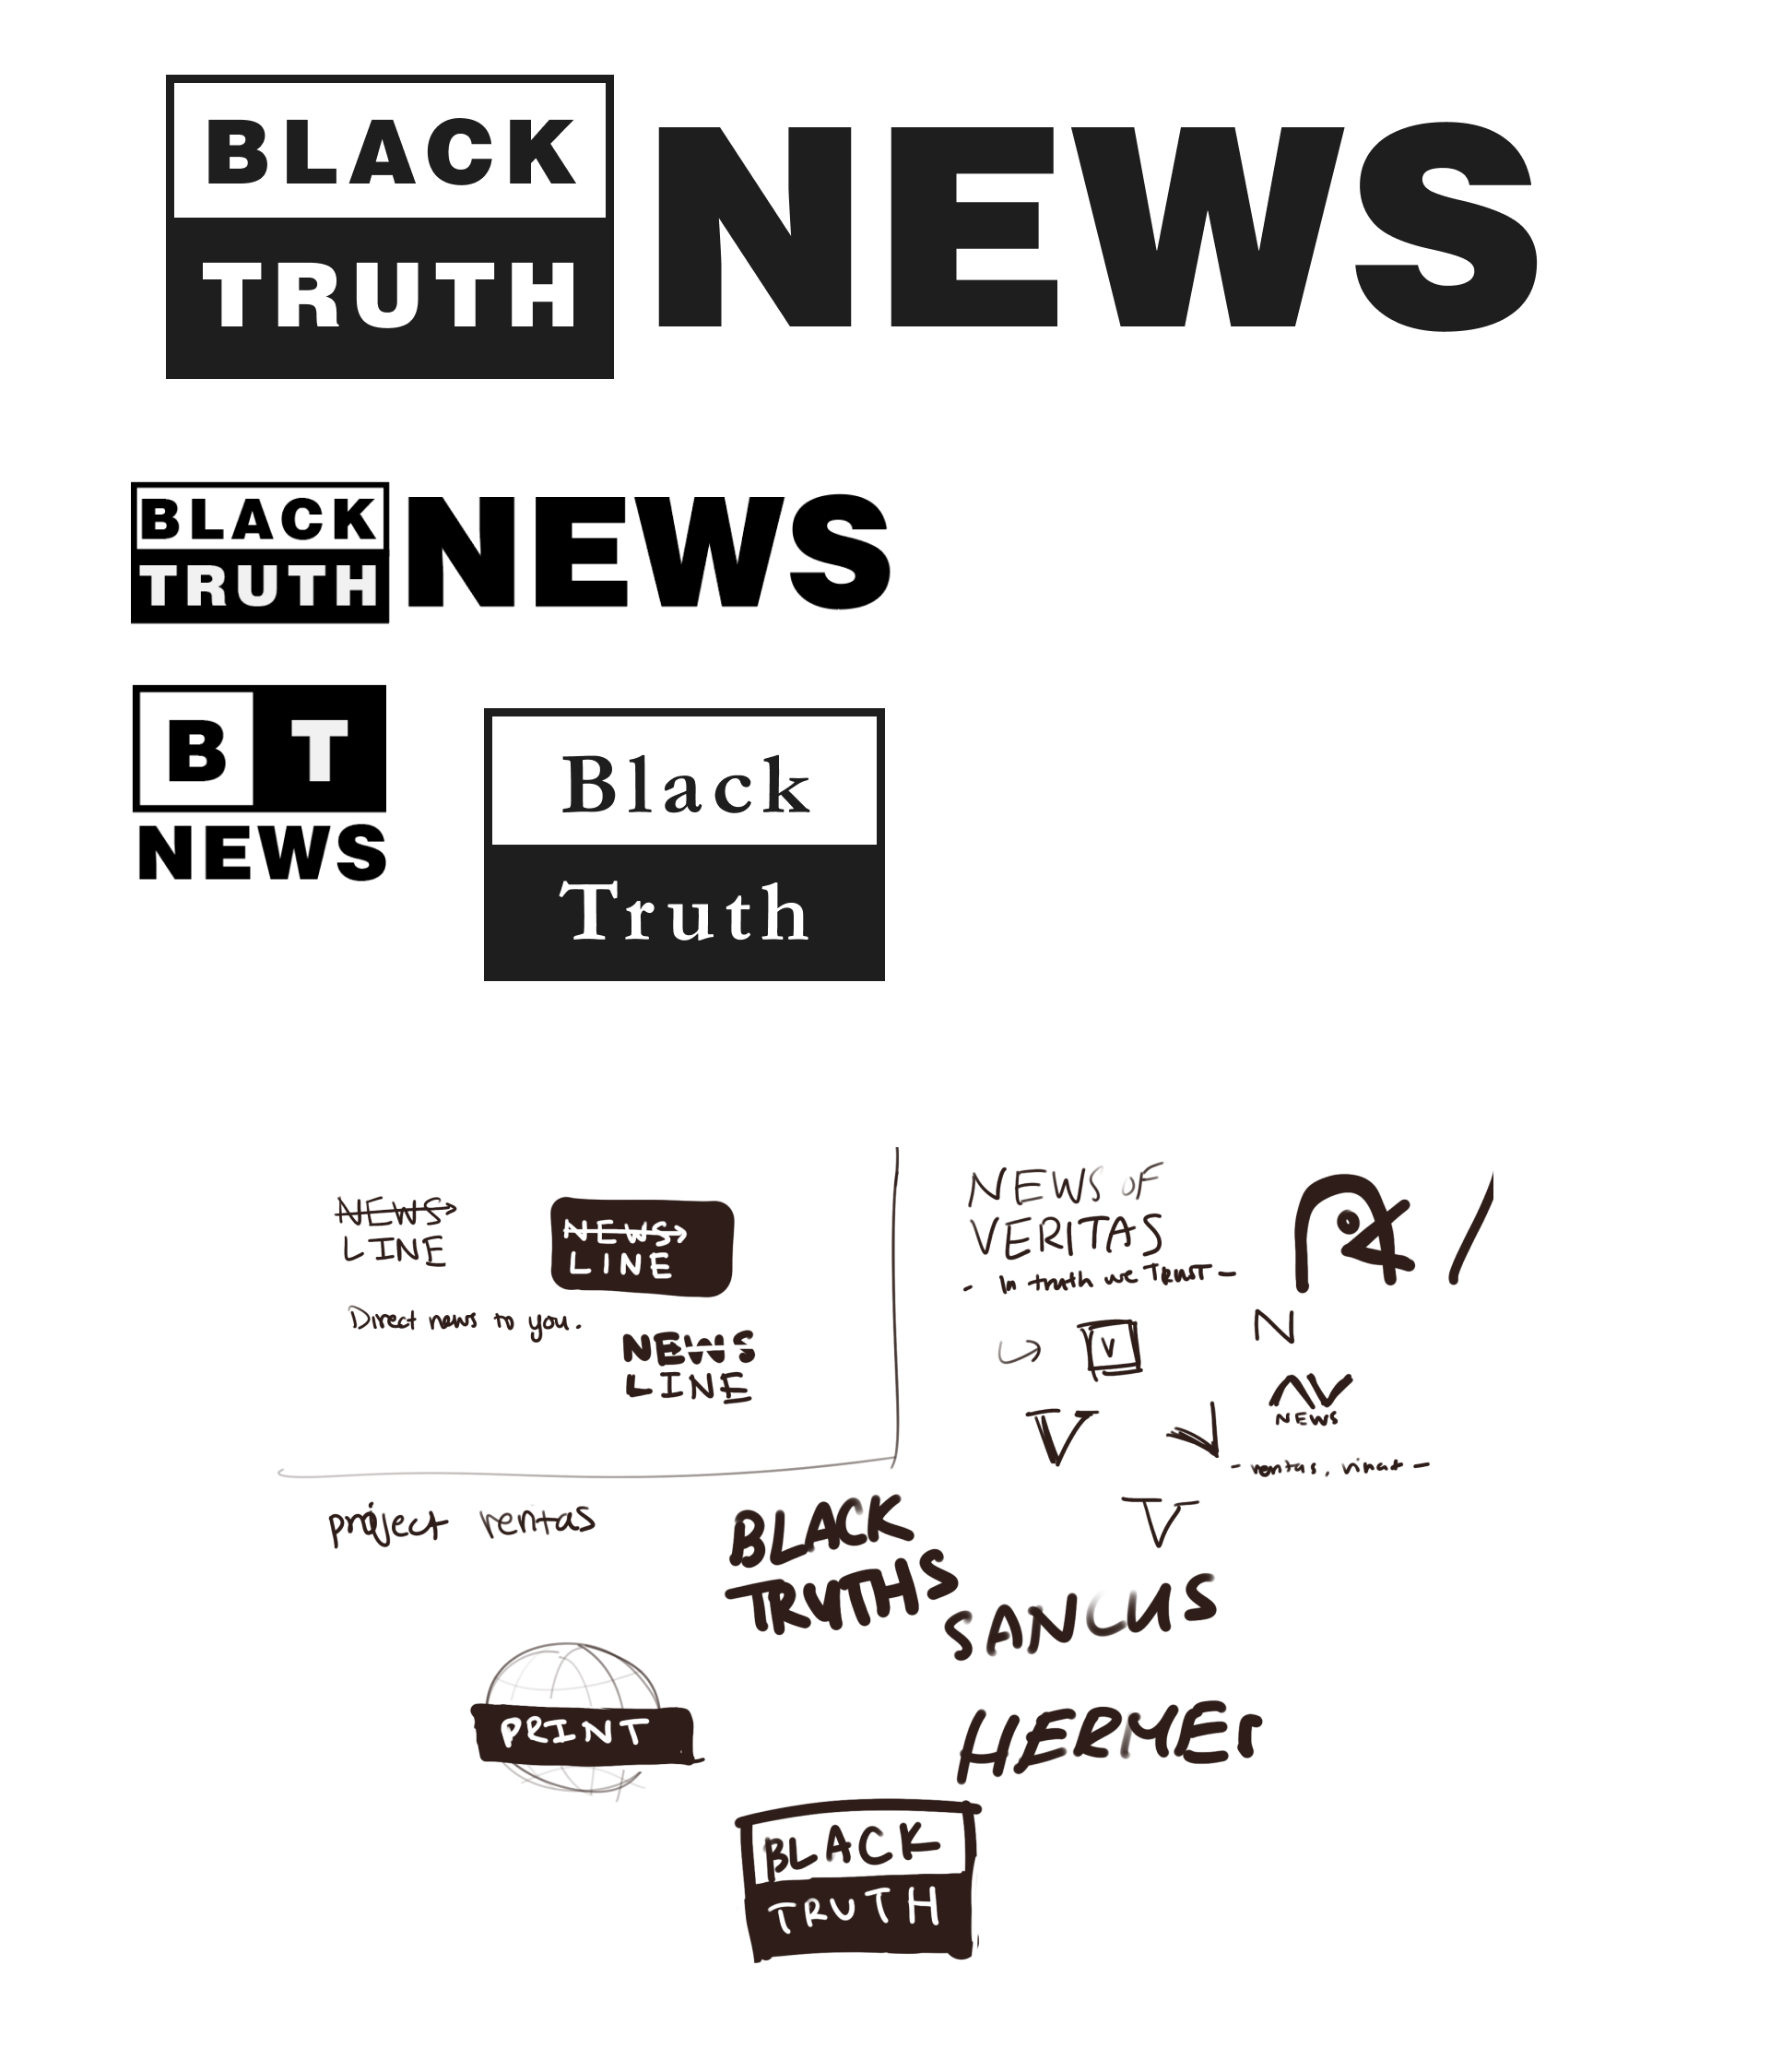 BLACK
TRUTH
NEWS
BLACK
TRUTH
NEWS
B T
NEWS
Black
Truth
NEWS
LINE
NEWS
LINE
Direct news to you.
NEWS
LINE
NEWS OF
VERITAS
- In truth we TRUST -
V
N
V
NEWS
V
project veritas
BLACK
TRUTHS
SANCUS
PRINT
HERMES
BLACK
TRUTH